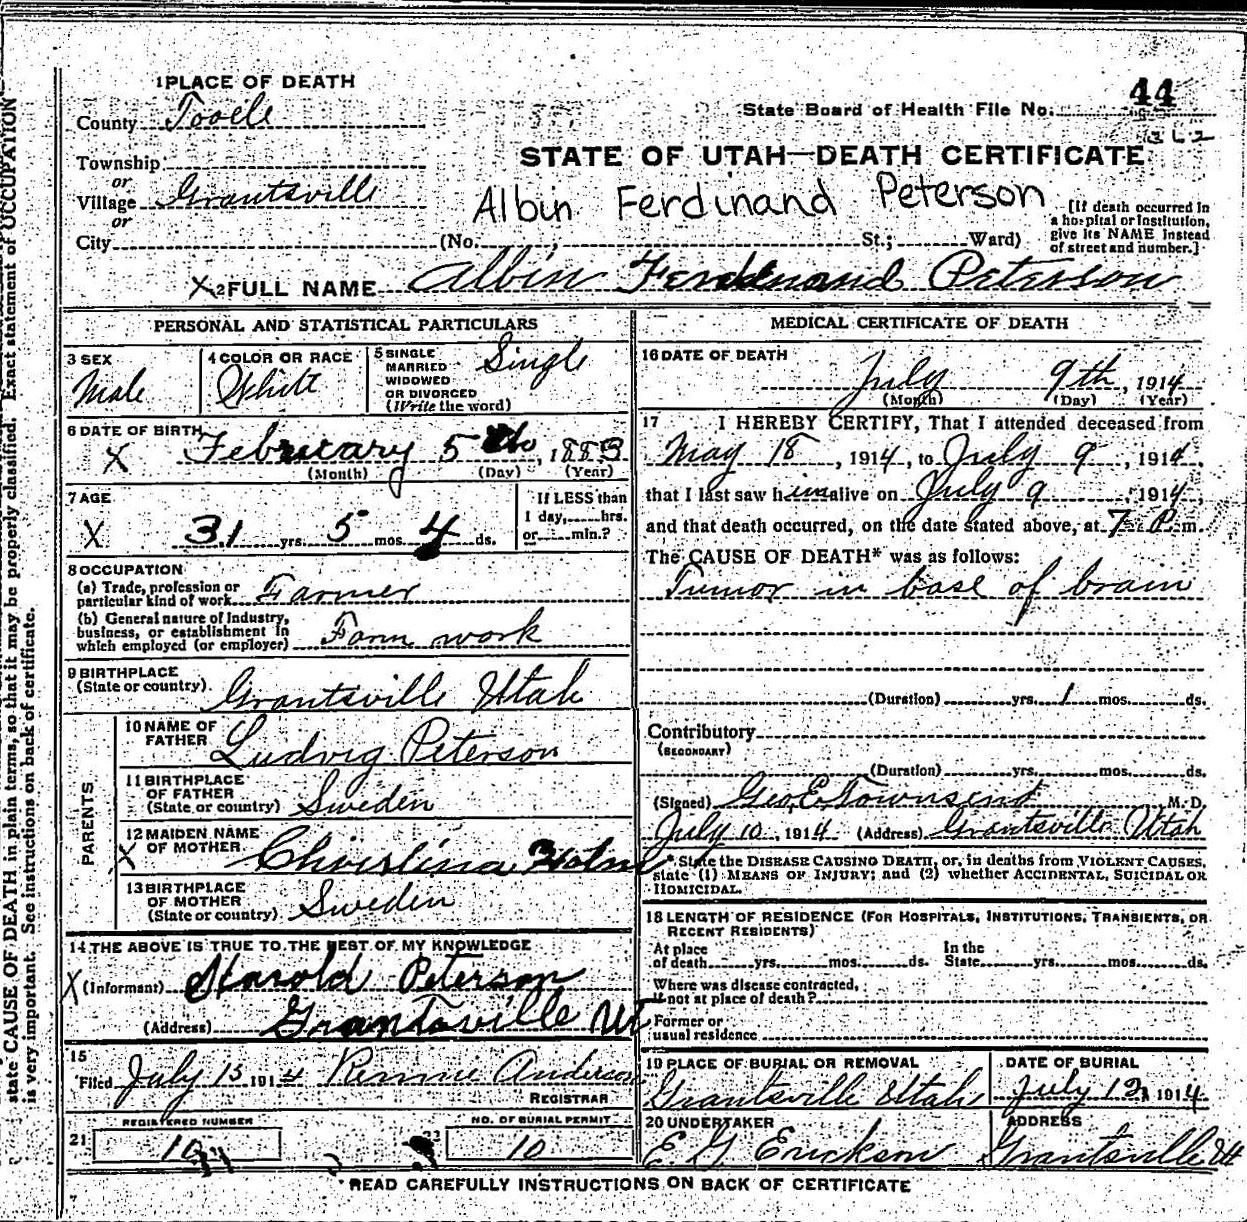 1 PLACE OF DEATH
County Tooele
Township
or
Village Grantsville
or
City
44
State Board of Health File No.
362
STATE OF UTAH—DEATH CERTIFICATE
Albin Ferdinand Peterson
(No. , St.; Ward)
[If death occurred in
a hospital or institution,
give its NAME instead
of street and number.]
X 2 FULL NAME Albin Ferdinand Peterson
PERSONAL AND STATISTICAL PARTICULARS
3 SEX
Male
4 COLOR OR RACE
White
5 SINGLE
MARRIED
WIDOWED
OR DIVORCED
(Write the word)
Single
6 DATE OF BIRTH
X February 5th, 1883
(Month) (Day) (Year)
7 AGE
X 31 yrs. 5 mos. 4 ds.
If LESS than
1 day, hrs.
or min.?
8 OCCUPATION
(a) Trade, profession or
particular kind of work Farmer
(b) General nature of Industry,
business, or establishment in
which employed (or employer) Farm work
9 BIRTHPLACE
(State or country) Grantsville Utah
PARENTS
10 NAME OF
FATHER Ludvig Peterson
11 BIRTHPLACE
OF FATHER
(State or country) Sweden
12 MAIDEN NAME
X OF MOTHER Christina Holm
13 BIRTHPLACE
OF MOTHER
(State or country) Sweden
14 THE ABOVE IS TRUE TO THE BEST OF MY KNOWLEDGE
X (Informant) Harold Peterson
(Address) Grantsville Ut
15
Filed July 15 1914 Rennie Anderson
REGISTRAR
REGISTERED NUMBER
21
22
NO. OF BURIAL PERMIT
10
MEDICAL CERTIFICATE OF DEATH
16 DATE OF DEATH
July 9th, 1914
(Month) (Day) (Year)
17 I HEREBY CERTIFY, That I attended deceased from
May 18, 1914, to July 9, 1914,
that I last saw him alive on July 9, 1914,
and that death occurred, on the date stated above, at 7 P. m.
The CAUSE OF DEATH* was as follows:
Tumor in base of brain
(Duration) yrs. 1 mos. ds.
Contributory
(SECONDARY)
(Duration) yrs. mos. ds.
(Signed) Geo. E. Townsend M. D.
July 10, 1914 (Address) Grantsville Utah
* State the DISEASE CAUSING DEATH, or, in deaths from VIOLENT CAUSES,
state (1) MEANS OF INJURY; and (2) whether ACCIDENTAL, SUICIDAL OR
HOMICIDAL.
18 LENGTH OF RESIDENCE (FOR HOSPITALS, INSTITUTIONS, TRANSIENTS, OR
RECENT RESIDENTS)
At place
of death yrs. mos. ds.
In the
State yrs. mos. ds.
Where was disease contracted,
if not at place of death?
Former or
usual residence
19 PLACE OF BURIAL OR REMOVAL
Grantsville Utah
DATE OF BURIAL
July 12, 1914
20 UNDERTAKER
E G Erickson
ADDRESS
Grantsville Ut
*READ CAREFULLY INSTRUCTIONS ON BACK OF CERTIFICATE
state CAUSE OF DEATH in plain terms, so that it may be properly classified. Exact statement of OCCUPATION
is very important. See instructions on back of certificate.